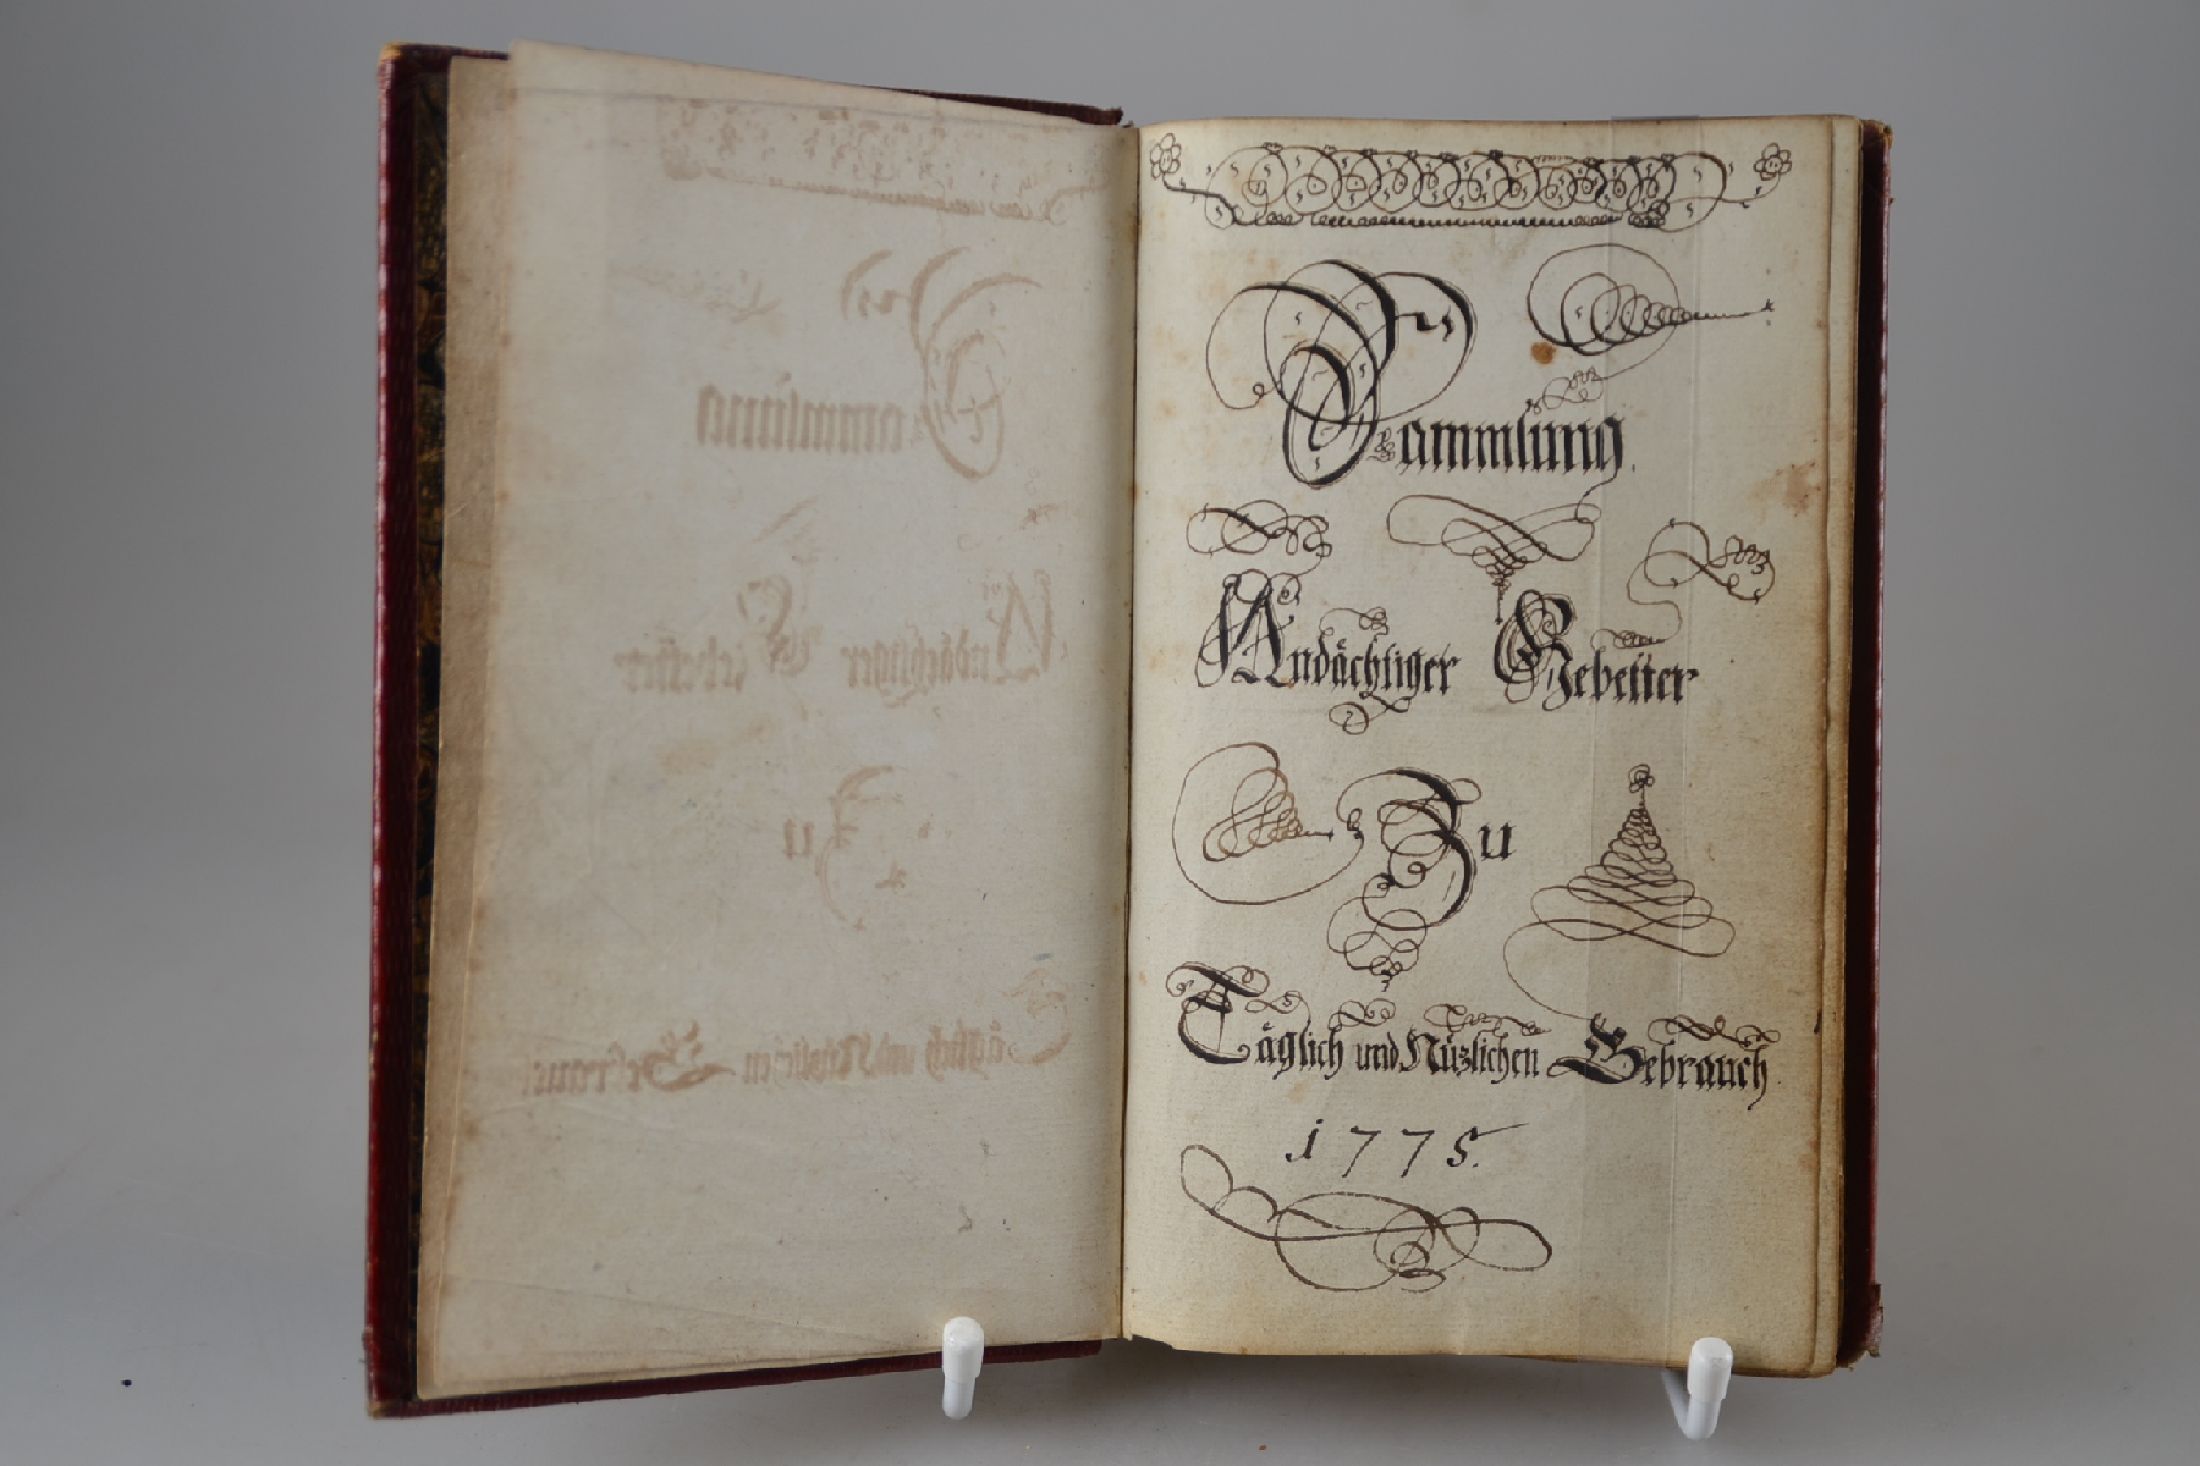 Sammlung.
Andächtiger Gebetter
Zu
Täglich und Nüzlichen Gebrauch.
1775.